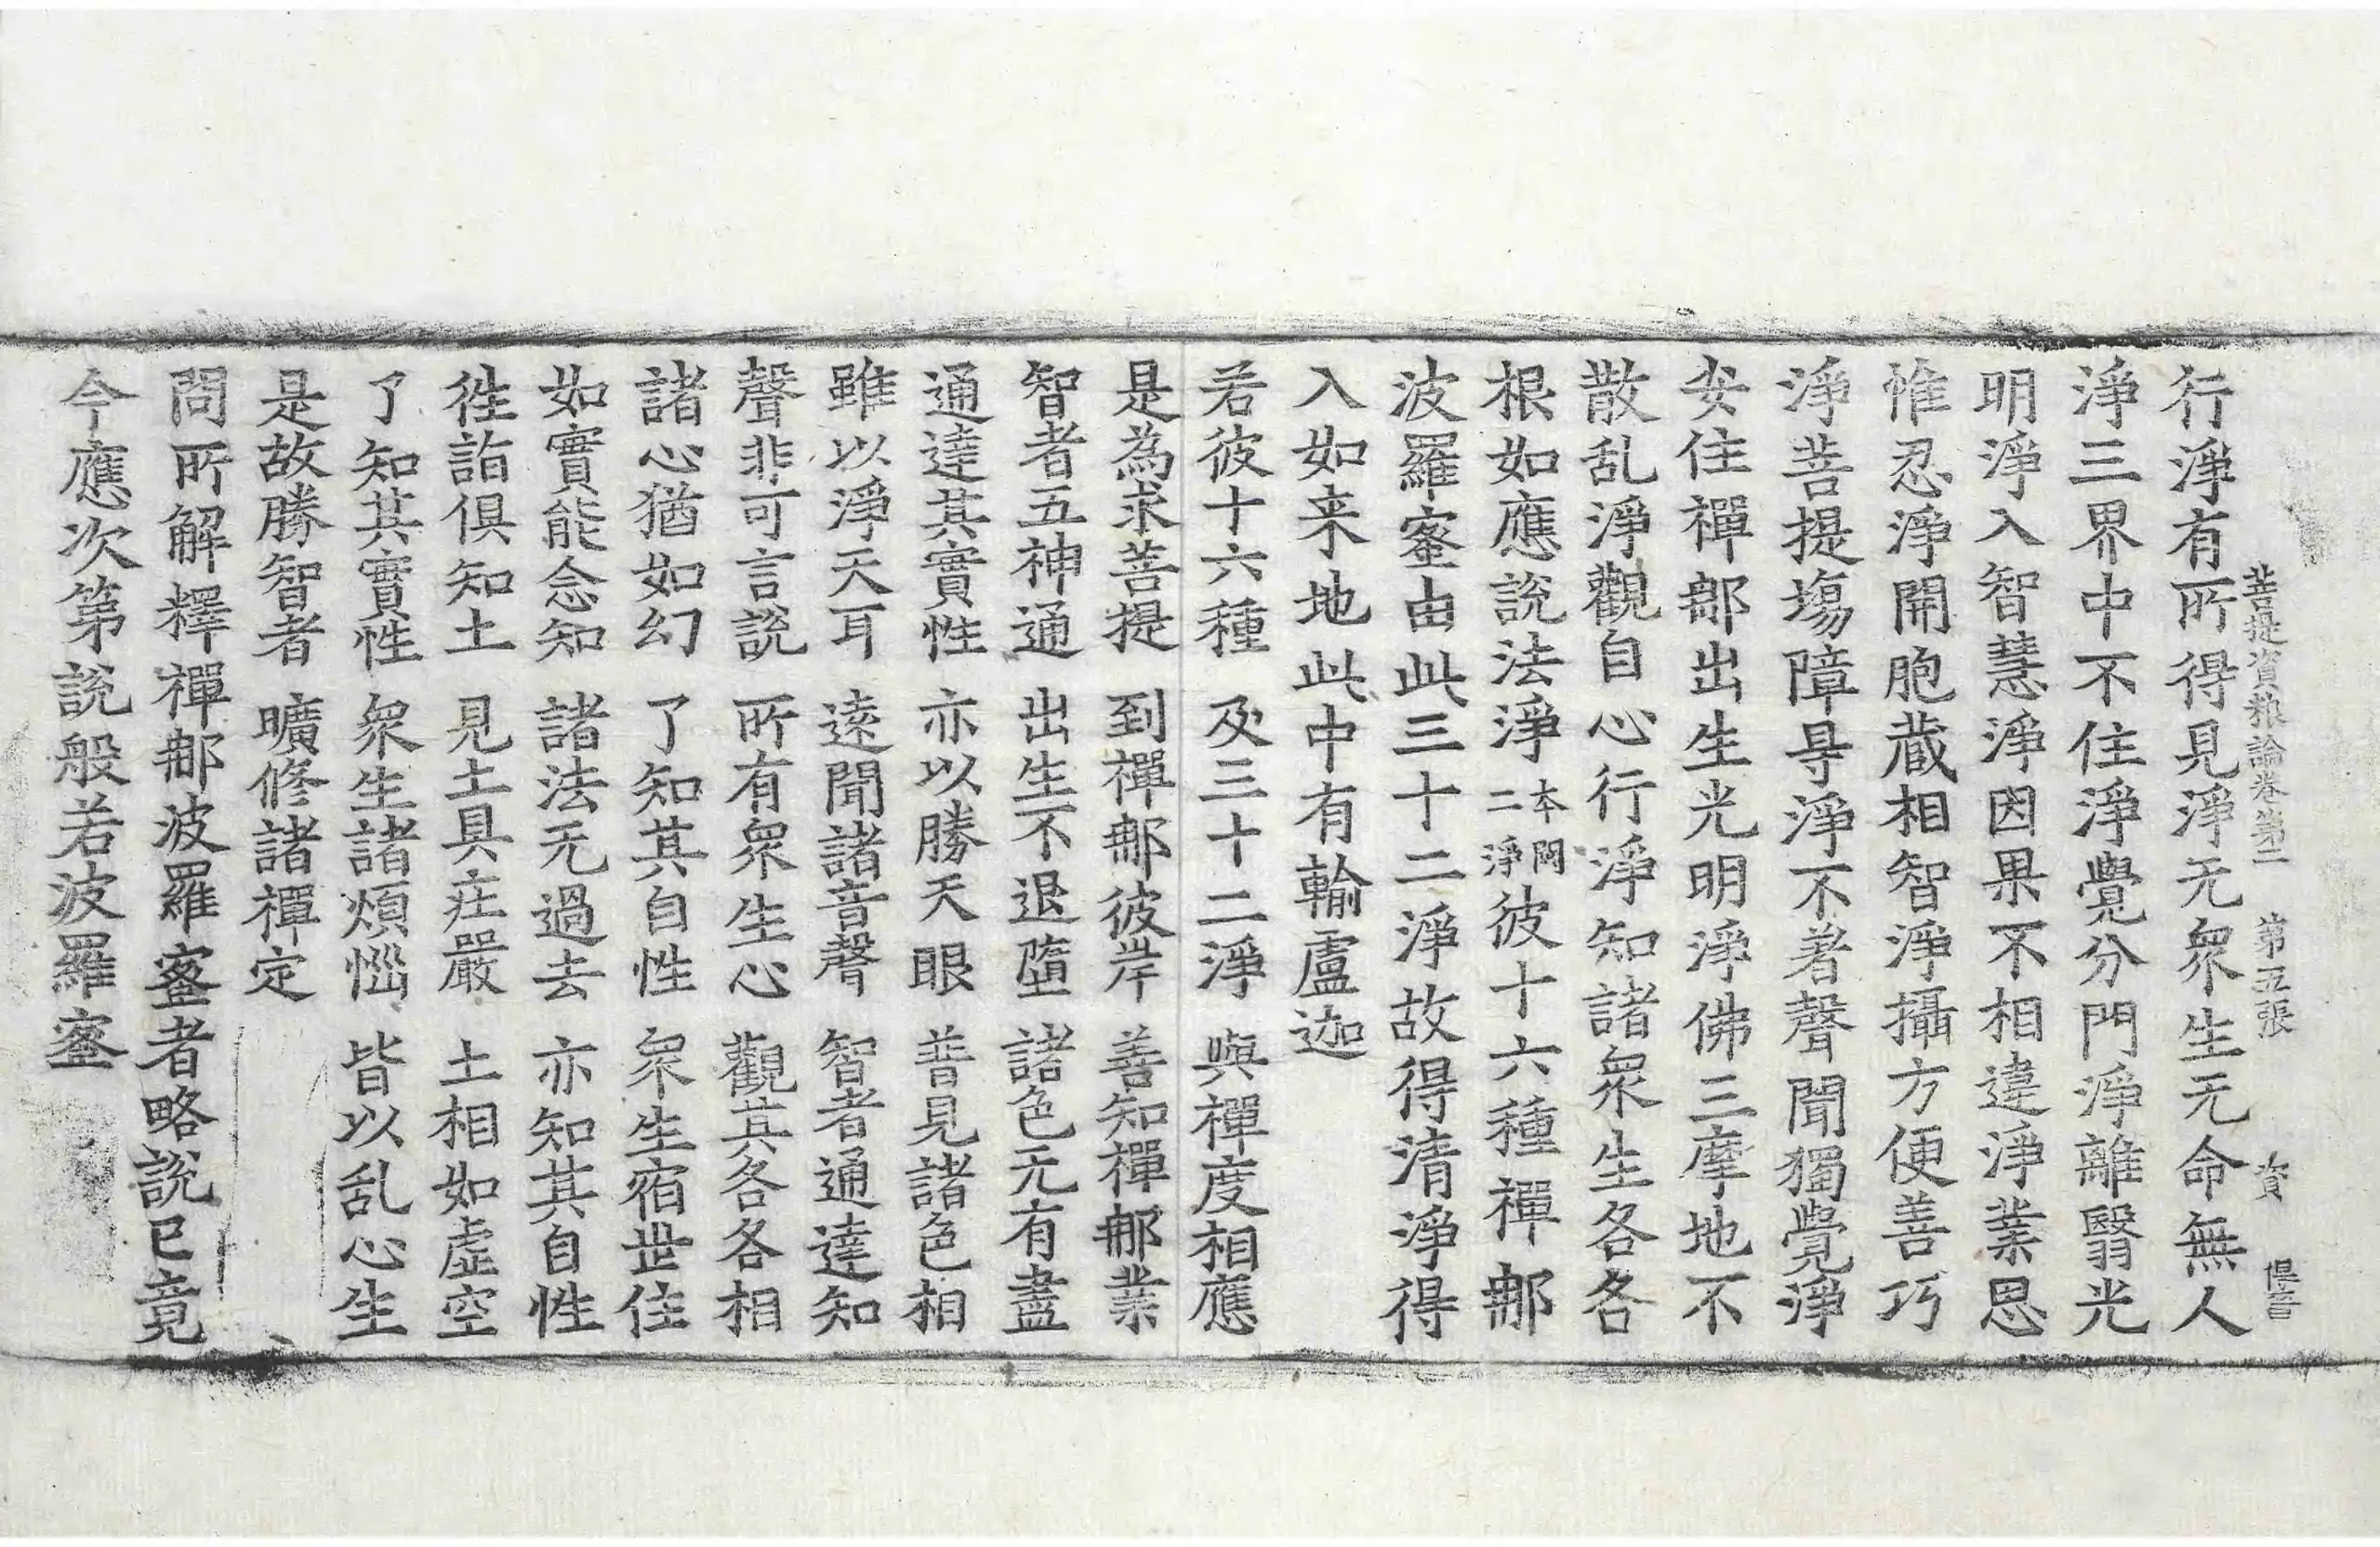 菩提資粮論卷第二　第五張　資　倶音
行淨有所得見淨无衆生无命無人
淨三界中不住淨覺分門淨離翳光
明淨入智慧淨因果不相違淨業思
惟忍淨開胞藏相智淨攝方便善巧
淨菩提場障㝵淨不著聲聞獨覺淨
安住禪那出生光明淨佛三摩地不
散乱淨觀自心行淨知諸衆生各各
根如應說法淨本闕二淨彼十六種禪那
波羅蜜由此三十二淨故得清淨得
入如来地此中有輸盧迦
若彼十六種　及三十二淨　與禪度相應
是為求菩提　到禪那彼岸　善知禪那業
智者五神通　出生不退墮　諸色无有盡
通達其實性　亦以勝天眼　普見諸色相
雖以淨天耳　遠聞諸音聲　智者通達知
聲非可言說　所有衆生心　觀其各各相
諸心猶如幻　了知其自性　衆生宿世住
如實能念知　諸法无過去　亦知其自性
徃詣俱知土　見土具庄嚴　土相如虛空
了知其實性　衆生諸煩惱　皆以乱心生
是故勝智者　曠修諸禪定
問所解釋禪那波羅蜜者略說已竟
今應次第說般若波羅蜜